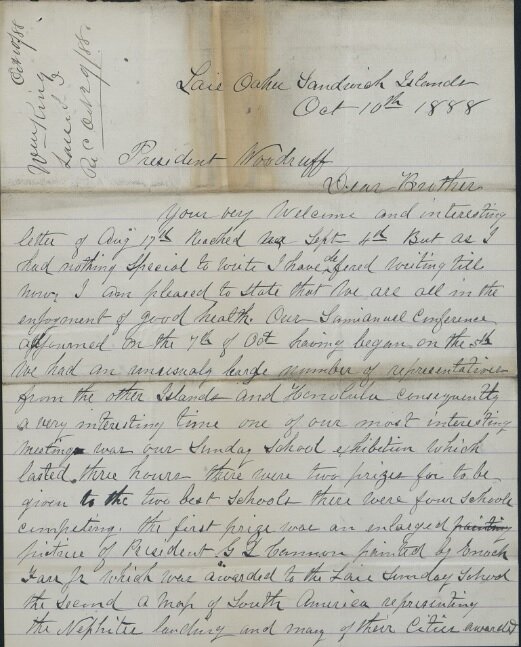 Oct 10/88
Wm King
Laie S. I.
Rec Oct 29/88.
Laie Oahu Sandwich Islands
Oct 10th 1888
President Woodruff
Dear Brother
Your very Welcome and interesting
letter of Aug 17th Reached me Sept 4th But as I
had nothing Special to write I have defered writing till
now. I am pleased to State that We are all in the
enjoyment of good health. Our Samianuel Conference
adjourned on the 7th of Oct having began on the 5th
We had an unusualy large number of representatives
from the other Islands and Honolulu consequently
a very interesting time one of our most interesting
meeting was our Sunday School exhibition which
lasted three hours there were two prizes for to be
given to the two best Schools there were four Schools
competing. the first prize was an enlarged painting
picture of President G Q Cannon painted by Enoch
Farr Jr which was awarded to the Laie Sunday School
the Second a Map of South America representing
the Nephites landing and many of their Cities awarded